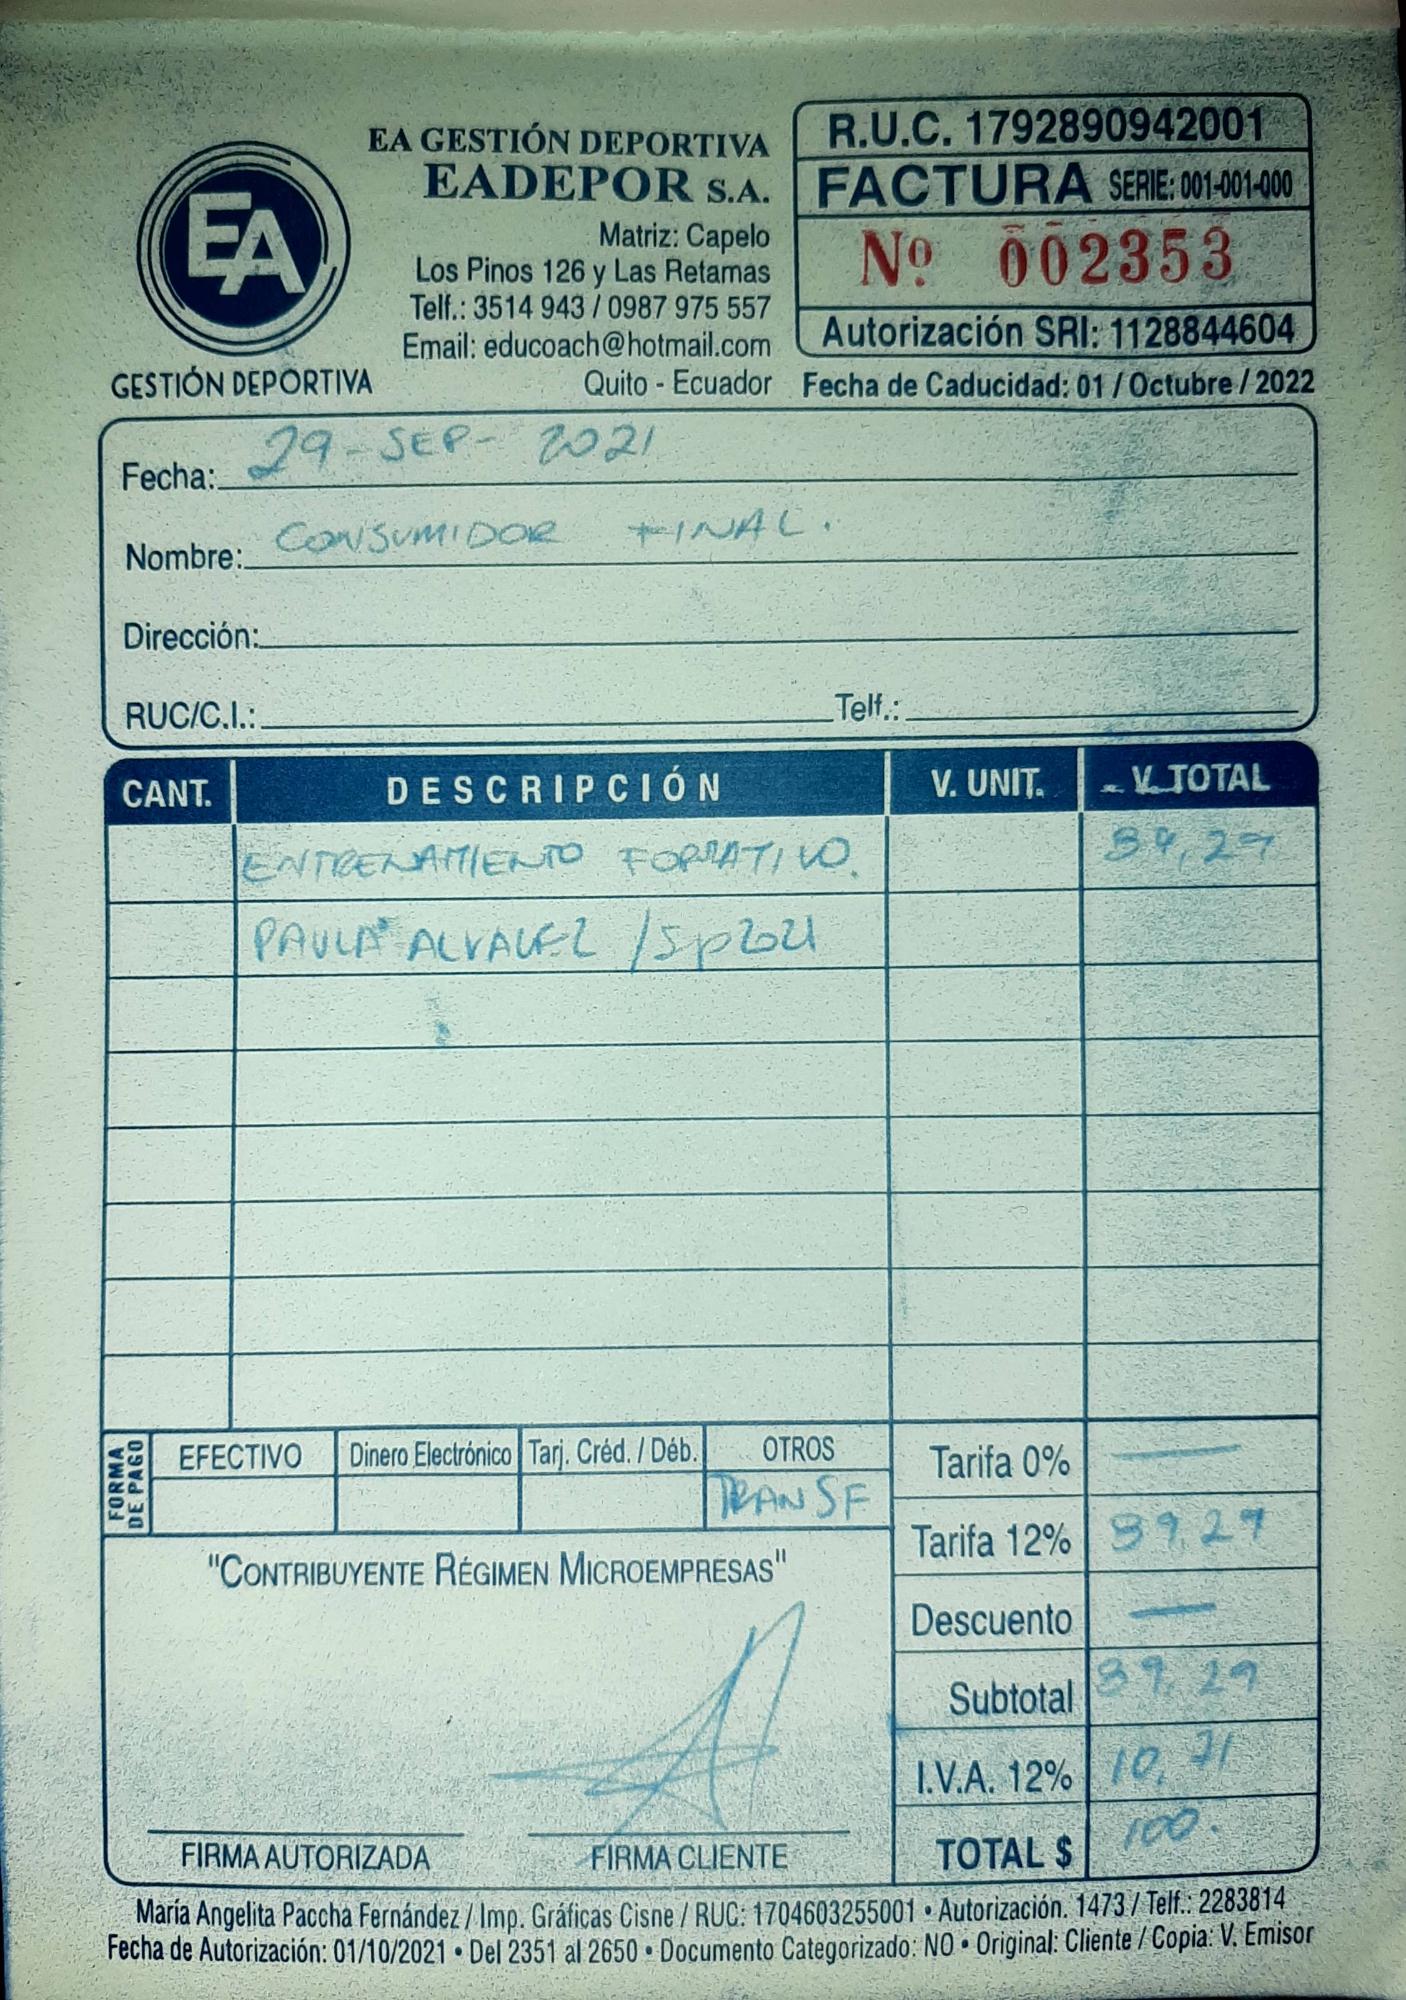 EA
GESTIÓN DEPORTIVA
EA GESTIÓN DEPORTIVA
EADEPOR S.A.
Matriz: Capelo
Los Pinos 126 y Las Retamas
Telf.: 3514 943 / 0987 975 557
Email: educoach@hotmail.com
Quito - Ecuador
R.U.C. 1792890942001
FACTURA SERIE: 001-001-000
Nº 002353
Autorización SRI: 1128844604
Fecha de Caducidad: 01 / Octubre / 2022
Fecha: 29-SEP-2021
Nombre: CONSUMIDOR FINAL.
Dirección:
RUC/C.I.: Telf.:
CANT. DESCRIPCIÓN V. UNIT. V. TOTAL
ENTRENAMIENTO FORMATIVO. 89,29
PAULA /Sp2021
FORMA DE PAGO
EFECTIVO Dinero Electrónico Tarj. Créd. / Déb. OTROS
TRANSF
Tarifa 0% —
Tarifa 12% 89,29
Descuento —
Subtotal 89,29
I.V.A. 12% 10,71
TOTAL $ 100.
"CONTRIBUYENTE RÉGIMEN MICROEMPRESAS"
FIRMA AUTORIZADA FIRMA CLIENTE
María Angelita Paccha Fernández / Imp. Gráficas Cisne / RUC: 1704603255001 • Autorización. 1473 / Telf.: 2283814
Fecha de Autorización: 01/10/2021 • Del 2351 al 2650 • Documento Categorizado: NO • Original: Cliente / Copia: V. Emisor